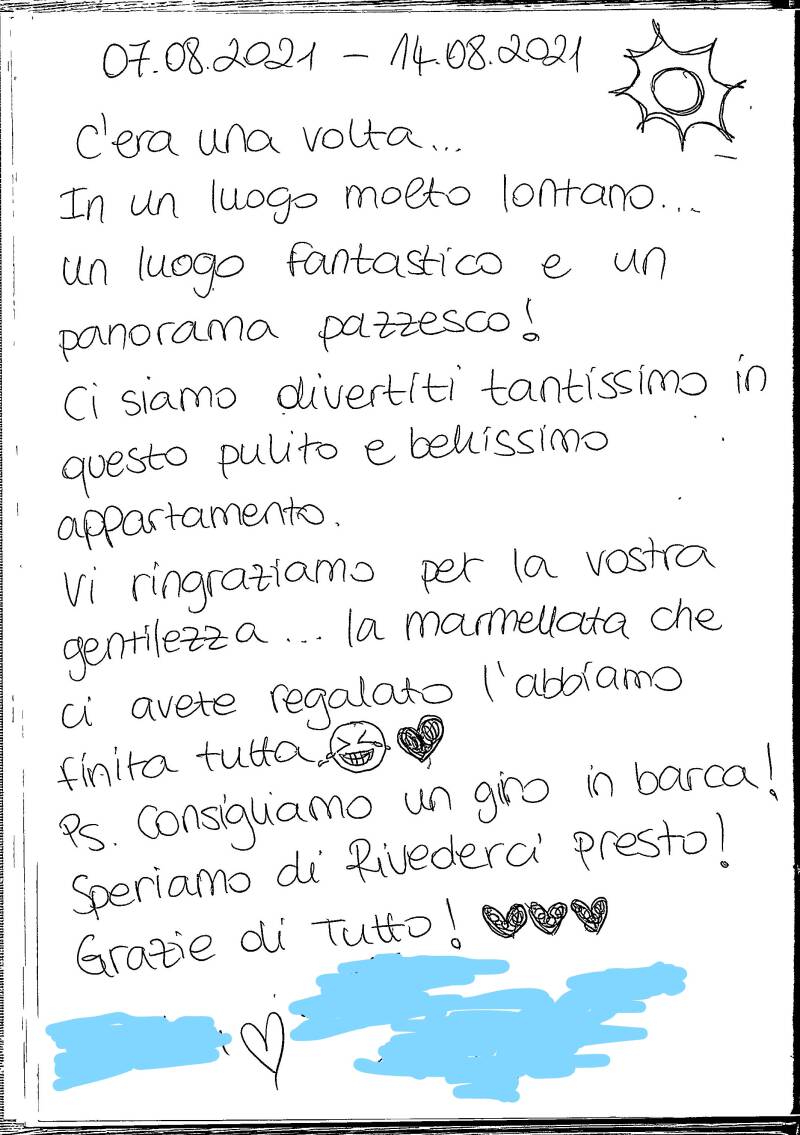 07.08.2021 - 14.08.2021
C'era una volta...
In un luogo molto lontano...
un luogo fantastico e un
panorama pazzesco!
Ci siamo divertiti tantissimo in
questo pulito e bellissimo
appartamento.
Vi ringraziamo per la vostra
gentilezza... la marmellata che
ci avete regalato l'abbiamo
finita tutta 😆🖤
Ps. Consigliamo un giro in barca!
Speriamo di Rivederci presto!
Grazie di Tutto! 🖤🖤🖤
♡